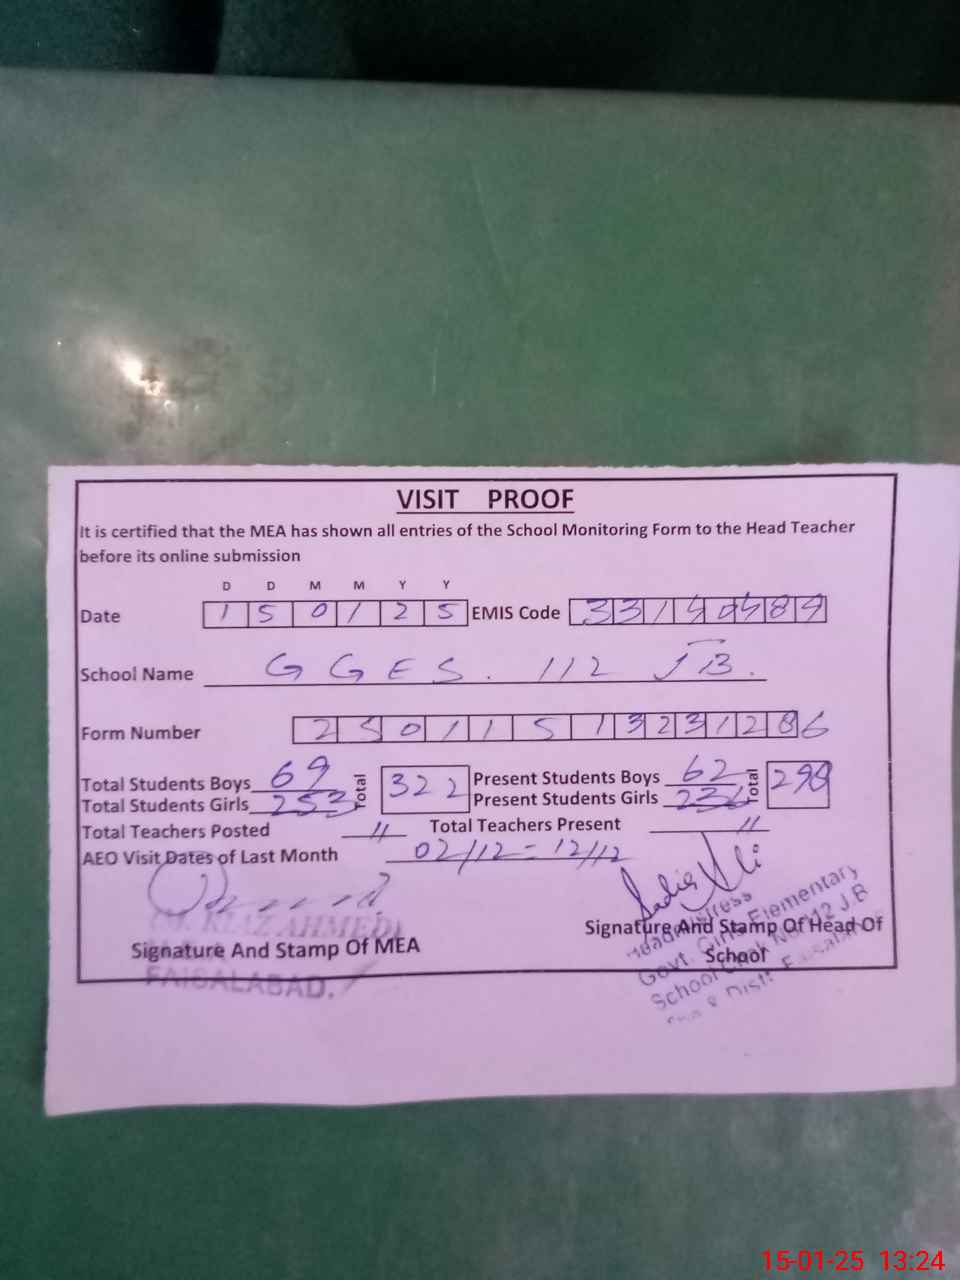 VISIT PROOF
It is certified that the MEA has shown all entries of the School Monitoring Form to the Head Teacher
before its online submission
D D M M Y Y
Date 1 5 0 1 2 5 EMIS Code 3 3 1 4 0 4 8 9
School Name G G E S . 112 J B .
Form Number
Total Students Boys 69 Total 322 Present Students Boys 62 Total
Total Students Girls 253 Present Students Girls
Total Teachers Posted 11 Total Teachers Present 11
AEO Visit Dates of Last Month 02/12 - 12/12
Sadia Ali
RIAZ AHMED
Signature And Stamp Of MEA
FAISALABAD.
Signature And Stamp Of Head Of
School
Headmistress
Govt. Girls Elementary
School Chak No. 112 J.B
& Distt. Faisalabad
15-01-25 13:24